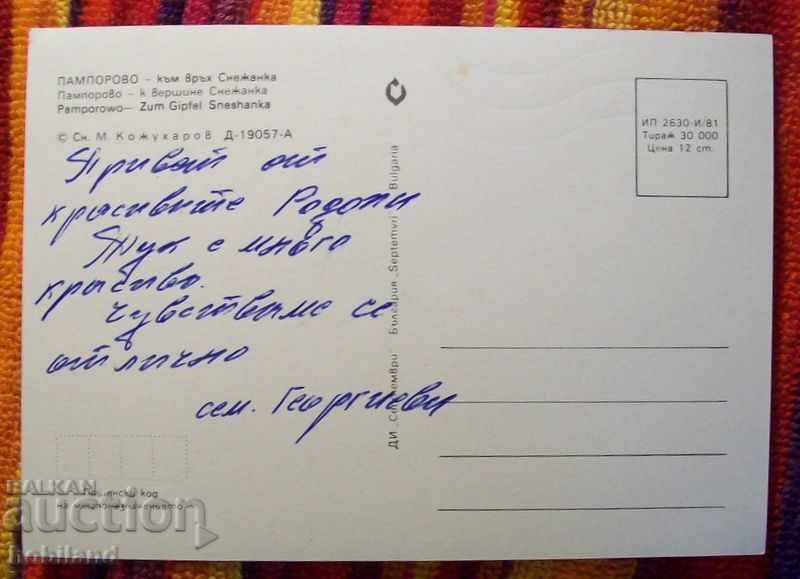 ПАМПОРОВО – към връх Снежанка
Пампорово – к вершине Снежанка
Pamporowo – Zum Gipfel Sneshanka
© Сн. М. Кожухаров Д-19057-А
Привет от
красивите Родопи
Тук е много
красиво.
Чувстваме се
отлично
сем. Георгиеви
ДИ „Септември" България „Septemvri" Bulgaria
ИП 2630-И/81
Тираж 30 000
Цена 12 ст.
Пощенски код
на местоназначението
BALKAN
auction
hobiland